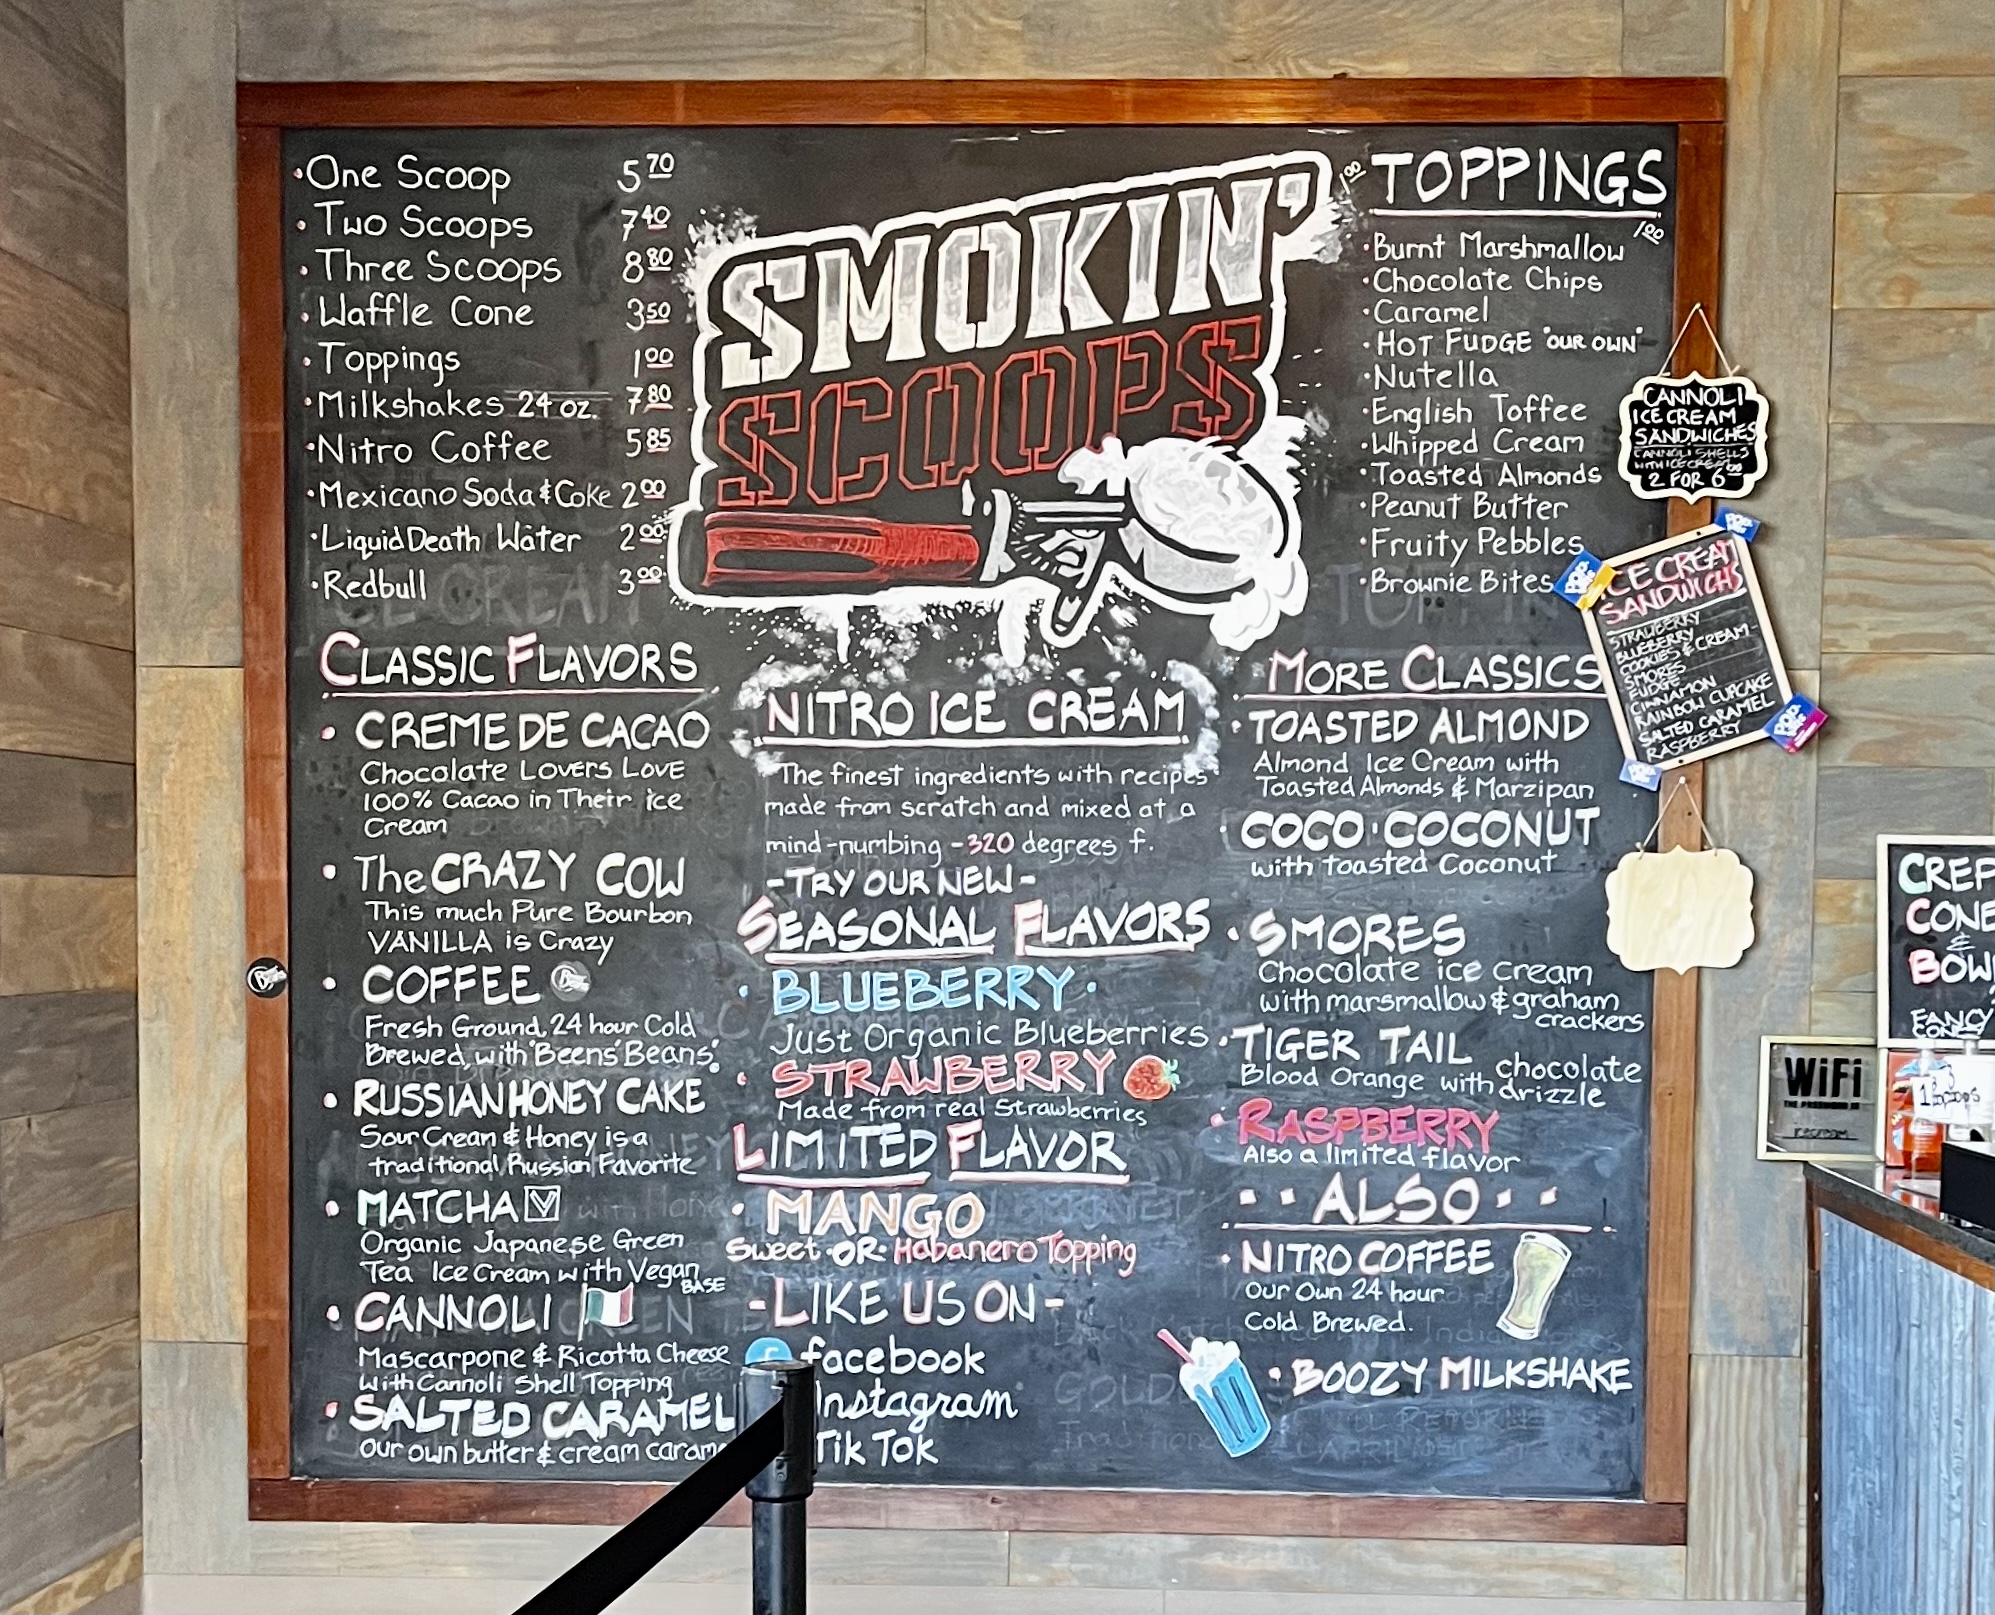 •One Scoop 5.70
•Two Scoops 7.40
•Three Scoops 8.80
•Waffle Cone 3.50
•Toppings 1.00
•Milkshakes 24 oz. 7.80
•Nitro Coffee 5.85
•Mexicano Soda & Coke 2.00
•Liquid Death Water 2.00
•Redbull 3.00
CLASSIC FLAVORS
• CREME DE CACAO
Chocolate Lovers Love
100% Cacao in Their ice
Cream
• The CRAZY COW
This much Pure Bourbon
VANILLA is Crazy
• COFFEE
Fresh Ground, 24 hour Cold
Brewed, with "Beens" Beans.
• RUSSIAN HONEY CAKE
Sour Crean & Honey is a
traditional Russian Favorite
• MATCHA V
Organic Japanese Green
Tea Ice Cream with Vegan
BASE
• CANNOLI
Mascarpone & Ricotta Cheese
With Cannoli Shell Topping
• SALTED CARAMEL
our own butter & cream
SMOKIN'
SCOOPS
NITRO ICE CREAM
The finest ingredients with recipes
made from scratch and mixed at a
mind-numbing -320 degrees f.
-TRY OUR NEW-
SEASONAL FLAVORS
• BLUEBERRY •
Just Organic Blueberries
• STRAWBERRY
Made from real Strawberries
LIMITED FLAVOR
• MANGO
Sweet • OR • Habanero Topping
-LIKE US ON-
facebook
Instagram
Tik Tok
1.00 TOPPINGS
1.00
•Burnt Marshmallow
•Chocolate Chips
•Caramel
•HOT FUDGE "OUR OWN"
•Nutella
•English Toffee
•Whipped Cream
•Toasted Almonds
•Peanut Butter
•Fruity Pebbles
•Brownie Bites
MORE CLASSICS
• TOASTED ALMOND
Almond Ice Cream with
Toasted Almonds & Marzipan
• COCO•COCONUT
with toasted Coconut
• SMORES
Chocolate ice cream
with marsmallow & graham
crackers
• TIGER TAIL
Blood Orange with chocolate
drizzle
• RASPBERRY
Also a limited flavor
• • ALSO • •
• NITRO COFFEE
Our Own 24 hour
Cold Brewed.
• BOOZY MILKSHAKE
CANNOLI
ICE CREAM
SANDWICHES
CANNOLI SHELLS
WITH ICE CREAM
2 FOR 6
ICE CREAM
SANDWICHS
STRAWBERRY
BLUEBERRY
COOKIES & CREAM-
SMORES
FUDGE
CINNAMON
RAINBOW CUPCAKE
SALTED CARAMEL
RASPBERRY
CREP
CONE
&
BOW
FANCY
CONES
WiFi